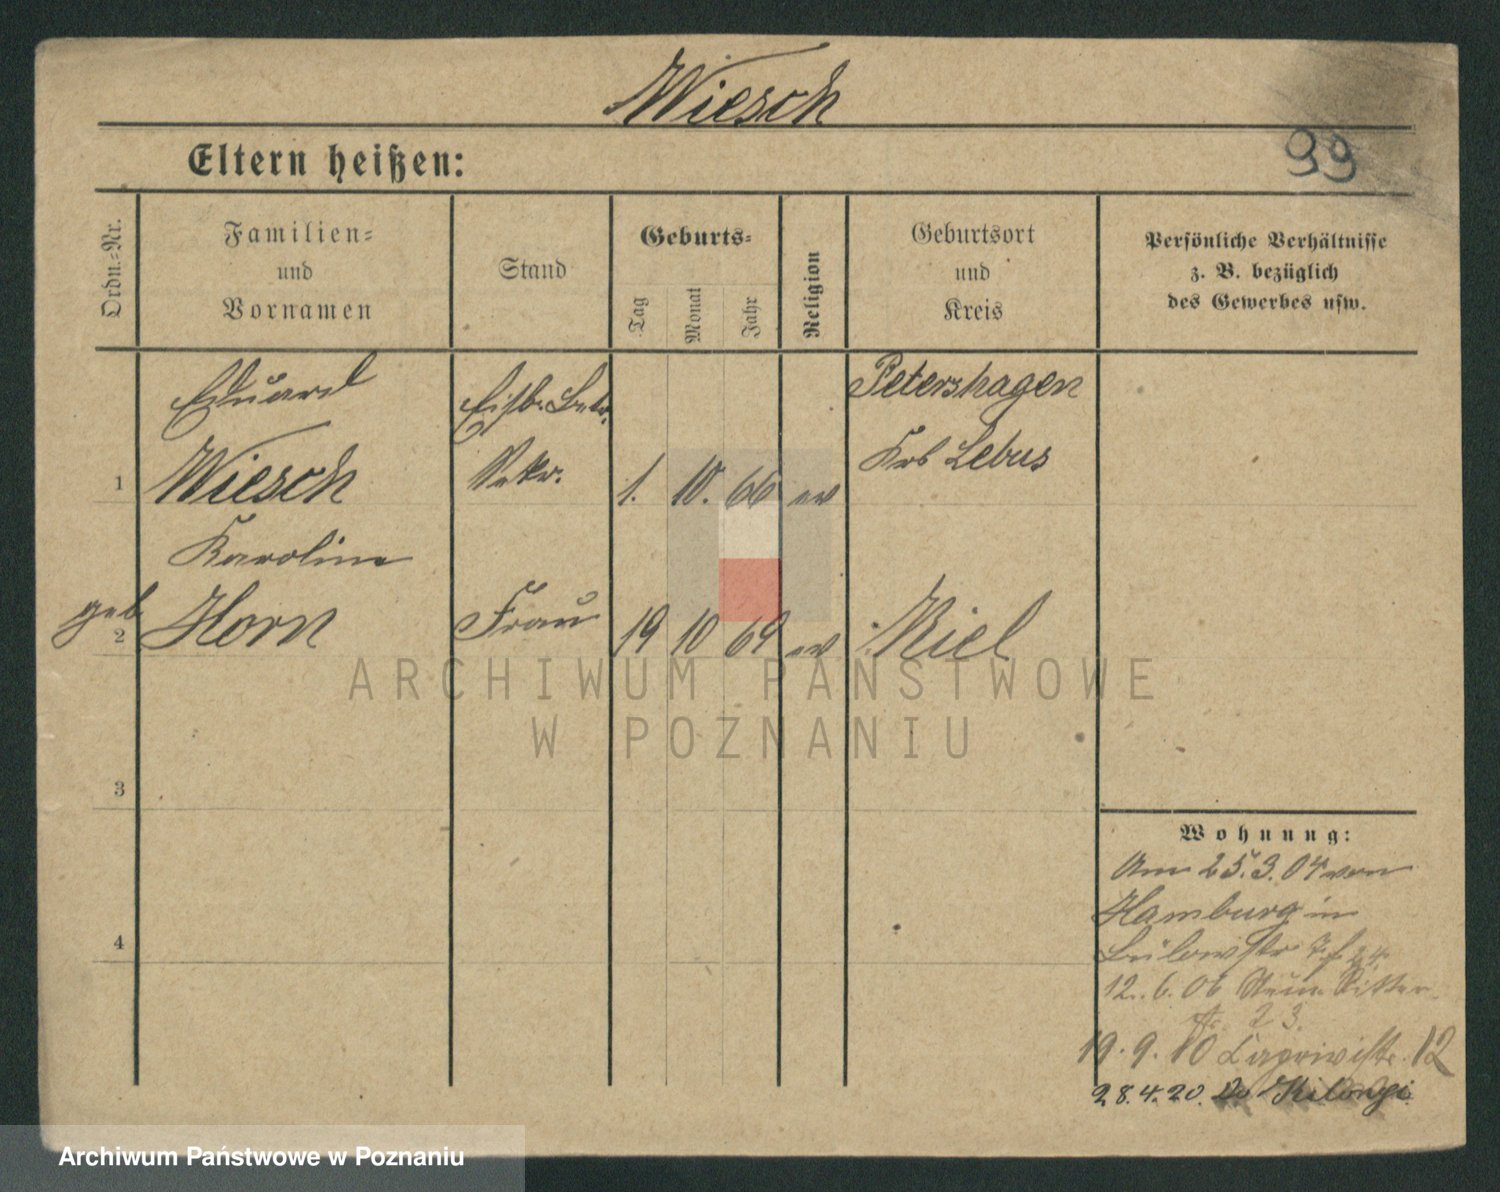 Wiesch
Eltern heißen:
99
Ordn.-Nr.
Familien-
und
Vornamen
Stand
Geburts-
Tag
Monat
Jahr
Religion
Geburtsort
und
Kreis
Persönliche Verhältnisse
z. B. bezüglich
des Gewerbes usw.
Eduard
Eisb. Betr.
Petershagen
Krs Lebus
1 Wiesch Sekr. 1. 10. 66 ev
Karoline
geb
2 Horn Frau 19 10 69 ev Kiel
ARCHIWUM PAŃSTWOWE
W POZNANIU
3
4
Wohnung:
Am 25.3.04 von
Hamburg in
Bülowstr
12.6.06 Ritter
23.
19.9.10 Caprivistr. 12
28.4.20.
Archiwum Państwowe w Poznaniu